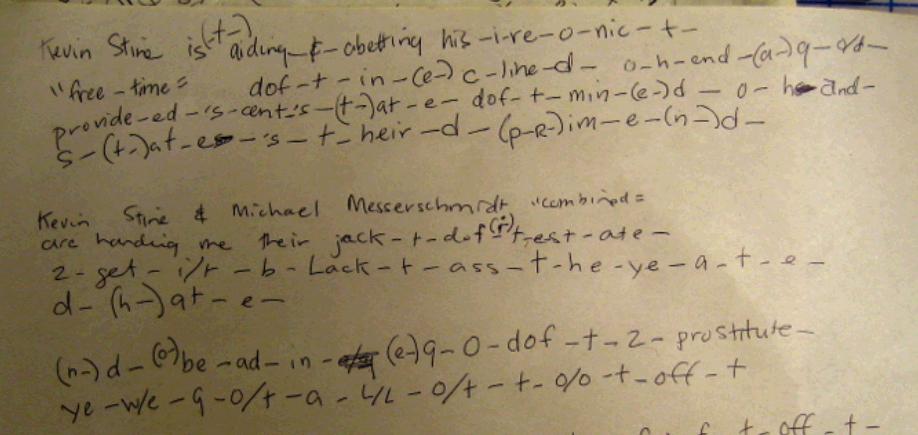 Kevin Stine is (-t-) aiding & -abetting his -i-re-o-nic-t-
"free-time= dof-t-in-(e-) c-line-d- o-h-end-(a-)q-
provide-ed-'s-cent's-(t-)at-e- dof-t-min-(e-)d-o-h and-
S-(t-)at-e -'s-t-heir-d-(p-R-)im-e-(n-)d-
Kevin Stine & Michael Messerschmidt "combined=
are handing me their jack-t-dof t-est-ate-
2-get-i/r-b-Lack-t-ass-t-he-ye-a-t-e-
d-(h-)at-e-
(n-)d-(o-)be-ad-in- (e-)q-O-dof-t-2-prostitute-
ye-w/e-q-o/t-a-L/L-o/t-t-o/o-t-off-t
t-off-t-